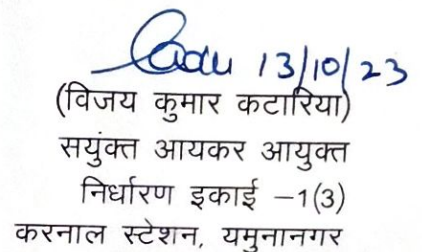 13/10/23
(विजय कुमार कटारिया)
सयुंक्त आयकर आयुक्त
निर्धारण इकाई –1(3)
करनाल स्टेशन, यमुनानगर